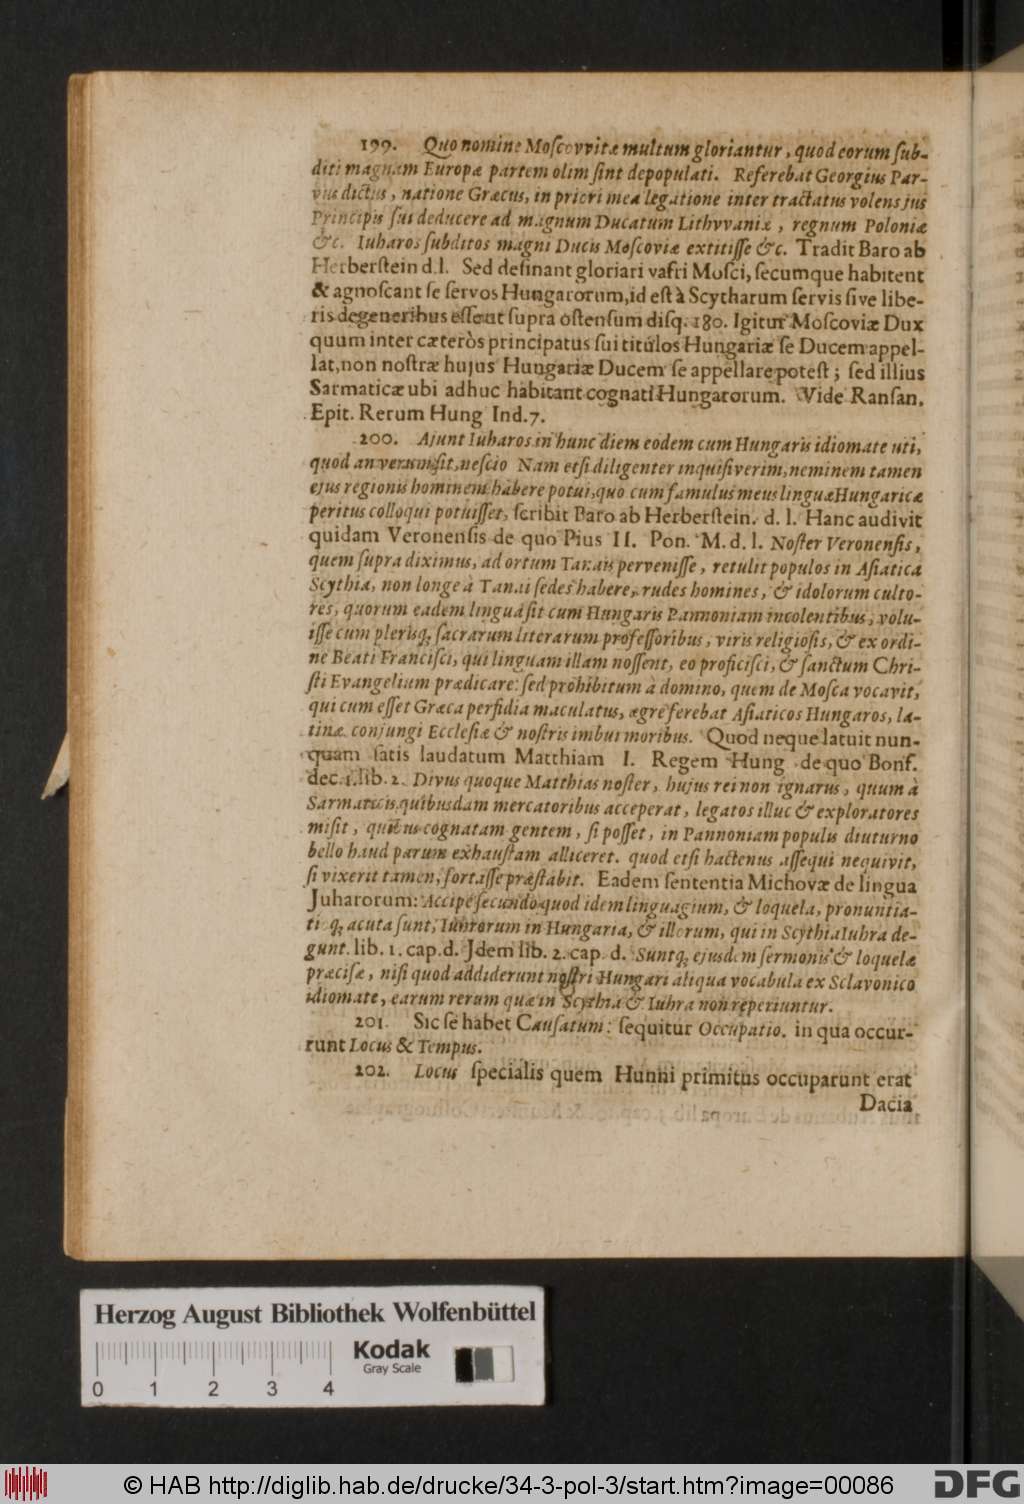 199. Quo nomine Moſcovvitæ multum gloriantur, quod eorum ſub-
diti magnam Europæ partem olim ſint depopulati. Referebat Georgius Par-
vus dictus, natione Græcus, in priori mea legatione inter tractatus volens jus
Principis ſui deducere ad magnum Ducatum Lithvvaniæ, regnum Poloniæ
&c. Iuharos ſubditos magni Ducis Moſcoviæ extitiſſe &c. Tradit Baro ab
Herberſtein d.l. Sed deſinant gloriari vafri Moſci, ſecumque habitent
& agnoſcant ſe ſervos Hungarorum, id eſt à Scytharum ſervis ſive libe-
ris degeneribus eſſe ut ſupra oſtenſum diſq. 180. Igitur Moſcoviæ Dux
quum inter cæteròs principatus ſui titulos Hungariæ ſe Ducem appel-
lat, non noſtræ hujus Hungariæ Ducem ſe appellare poteſt; ſed illius
Sarmaticæ ubi adhuc habitant cognati Hungarorum. Vide Ranſan.
Epit. Rerum Hung Ind. 7.
200. Ajunt Iuharos in hunc diem eodem cum Hungaris idiomate uti,
quod an verum ſit, neſcio Nam etſi diligenter inquiſiverim, neminem tamen
ejus regionis hominem habere potui, quo cum famulus meus linguæ Hungaricæ
peritus colloqui potuiſſet, ſcribit Baro ab Herberſtein. d. l. Hanc audivit
quidam Veronenſis de quo Pius II. Pon. M. d. l. Noſter Veronenſis,
quem ſupra diximus, ad ortum Tanais perveniſſe, retulit populos in Aſiatica
Scythia, non longe à Tanai ſedes habere, rudes homines, & idolorum culto-
res, quorum eadem lingua ſit cum Hungaris Pannoniam incolentibus, volu-
iſſe cum pleriſq; ſacrarum literarum profeſſoribus, viris religioſis, & ex ordi-
ne Beati Franciſci, qui linguam illam noſſent, eo proficiſci, & ſanctum Chri-
ſti Evangelium prædicare: ſed prohibitum à domino, quem de Moſca vocavit,
qui cum eſſet Græca perfidia maculatus, ægre ferebat Aſiaticos Hungaros, la-
tinæ conjungi Eccleſiæ & noſtris imbui moribus. Quod neque latuit nun-
quam ſatis laudatum Matthiam I. Regem Hung de quo Bonf.
dec. 1. lib. 2. Divus quoque Matthias noſter, hujus rei non ignarus, quum à
Sarmaticis quibusdam mercatoribus acceperat, legatos illuc & exploratores
miſit, quibus cognatam gentem, ſi poſſet, in Pannoniam populis diuturno
bello haud parum exhauſtam alliceret. quod etſi hactenus aſſequi nequivit,
ſi vixerit tamen, fortaſſe præſtabit. Eadem ſententia Michovæ de lingua
Juharorum: Accipe ſecundo quod idem linguagium, & loquela, pronuntia-
tioq; acuta ſunt, Iuhrorum in Hungaria, & illorum, qui in Scythia Iuhra de-
gunt. lib. 1. cap. d. Jdem lib. 2. cap. d. Suntq; ejusdem ſermonis & loquelæ
præciſæ, niſi quod addiderunt noſtri Hungari aliqua vocabula ex Sclavonico
idiomate, earum rerum quæ in Scythia & Iuhra non reperiuntur.
201. Sic ſe habet Cauſatum: ſequitur Occupatio. in qua occur-
runt Locus & Tempus.
202. Locus ſpecialis quem Hunni primitus occuparunt erat
Dacia
Herzog August Bibliothek Wolfenbüttel
Kodak
Gray Scale
0 1 2 3 4
© HAB http://diglib.hab.de/drucke/34-3-pol-3/start.htm?image=00086
DFG